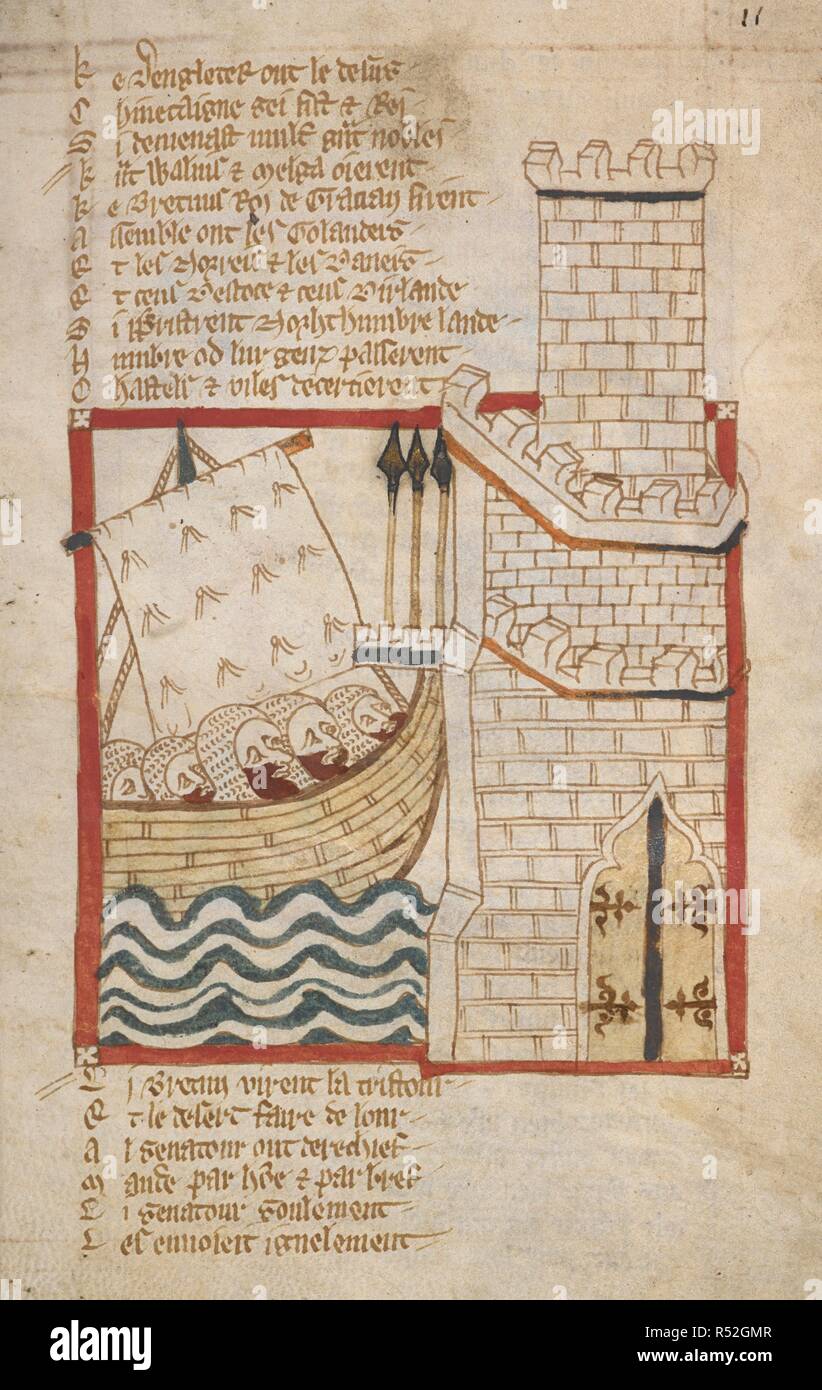 11
K e dengleter ont le desus
C hiuetaigne sei fist & Rei
S i deuenast mult nobles
K Walnis & Melga oierent
K e Bretuns Roi de Gracian firent
A semble ont les Golanders
E t les Norreis & les Daneis
E t ceus descoce & ceus dirlande
S i pristrent Northhumbre lande
H umbre od lur genz passerent
C hastels & viles decertierent
L i Bretun virent la tristour
E t le desert faire de lour
A l senatour ont derechief
M ande par & par bref
L i senatour soulement
L es enuoieit ignelement
alamy
Image ID: R52GMR
www.alamy.com